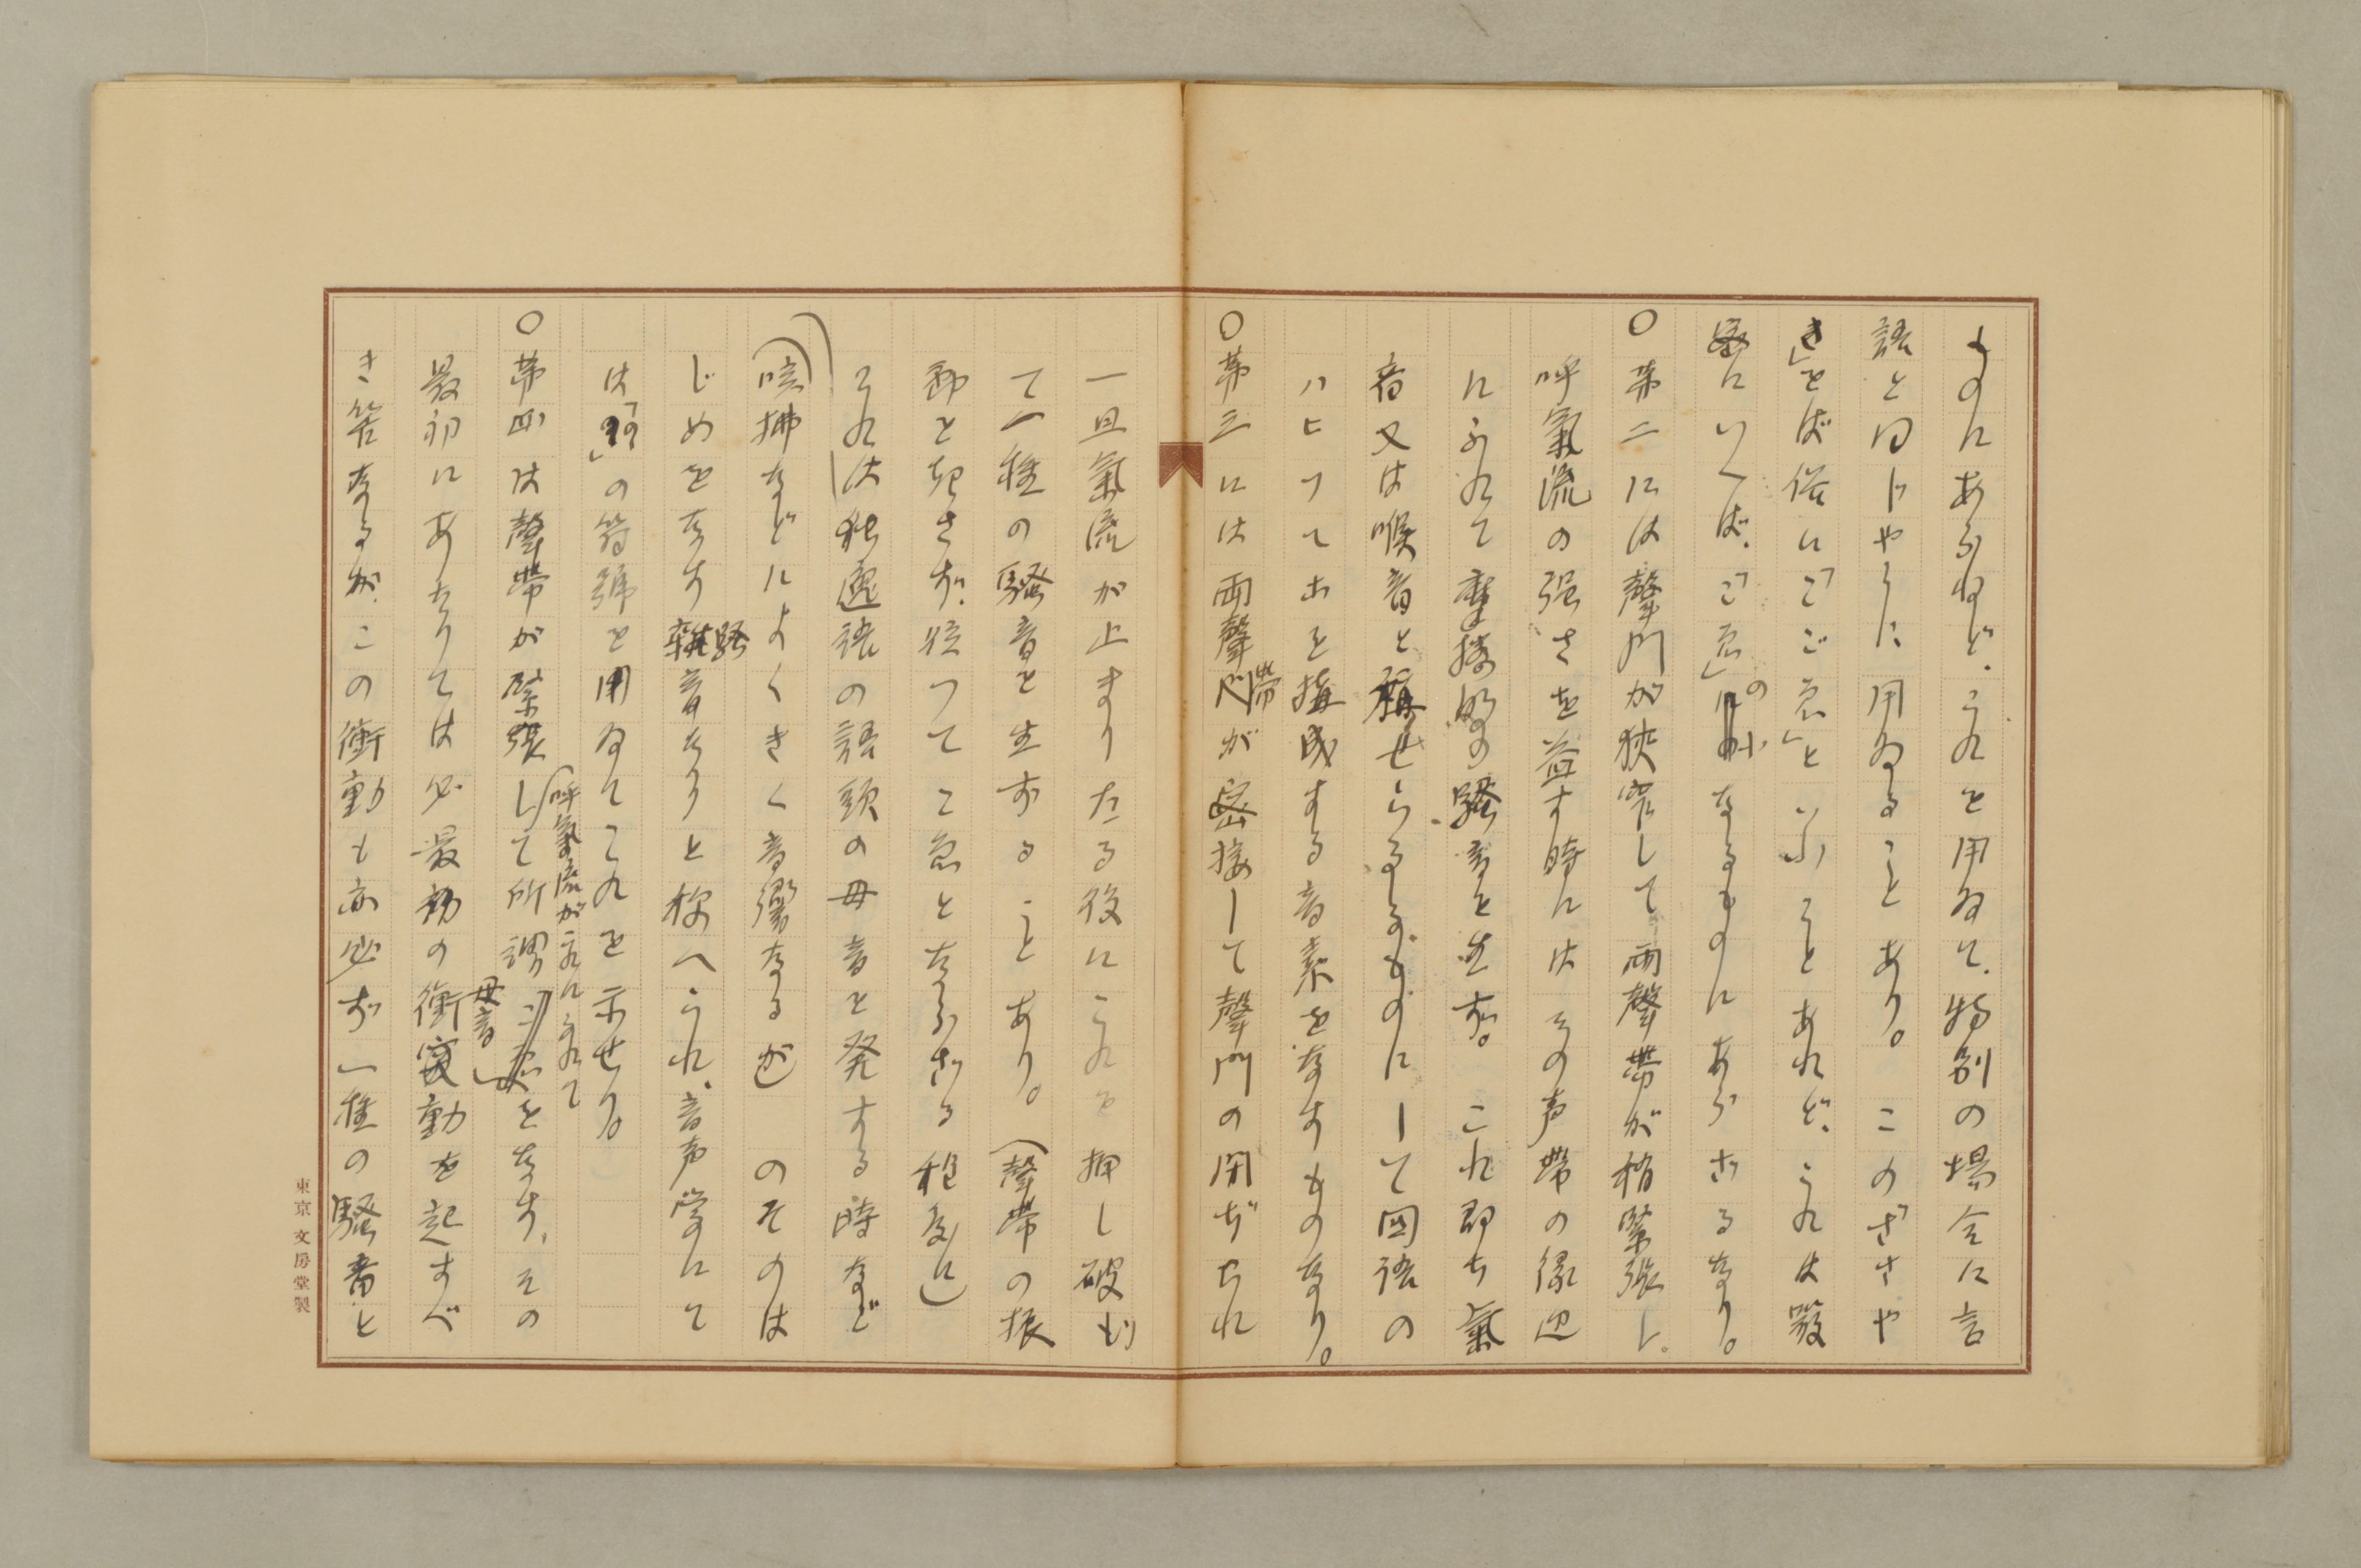 ものにあらねど、これを用ゐて、特別の場合に言
語と同じやうに用ゐることあり。この「ささや
き」をば俗に「こごゑ」といふことあれど、これは嚴
密にいへば、「こゑ」のなるものにあらざるなり。
○第二には聲門が狹窄して兩聲帶が稍緊張し、
呼氣流の强さを益す時にはその声帶の緣辺
にふれて摩擦的の騷音を生ず。これ即ち氣
音又は喉音と稱せらるゝものにして國語の
ハヒフヘホを構成する音素をなすものなり。
○第三には兩聲帶が密接して聲門の閉ぢられ
一旦氣流が止まりたる後にこれを押し破り
て一種の騷音を生ずることあり。(聲帶の振
動を起さず、從つてこゑとならざる程度に)
これは独逸語の語頭の母音を発する時など
咳拂などによくきく音響なるが のそのは
じめをなす騷音なりと称へられ、音声學にて
は「’」の符號を用ゐてこれを示せり。
○第四は聲帶が緊張して
呼氣流がこれにふれて
所謂
母音
をなす、その
最初にありては必最初の衝動を起すべ
き筈なるが、この衝動も亦必ず一種の騷音と
東京 文房堂製